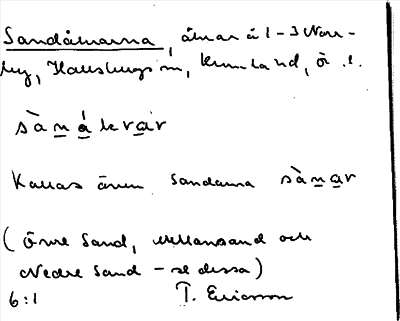 Sandåkrarna, åkrar å 1-3 Norr-
by, Hallsbergs sn, Kumla hd, Ö. l.
sànákrar
Kallas även Sandarna sànar
(Övre Sand, Mellansand och
Nedre Sand - se dessa)
6:1 T. Ericsson